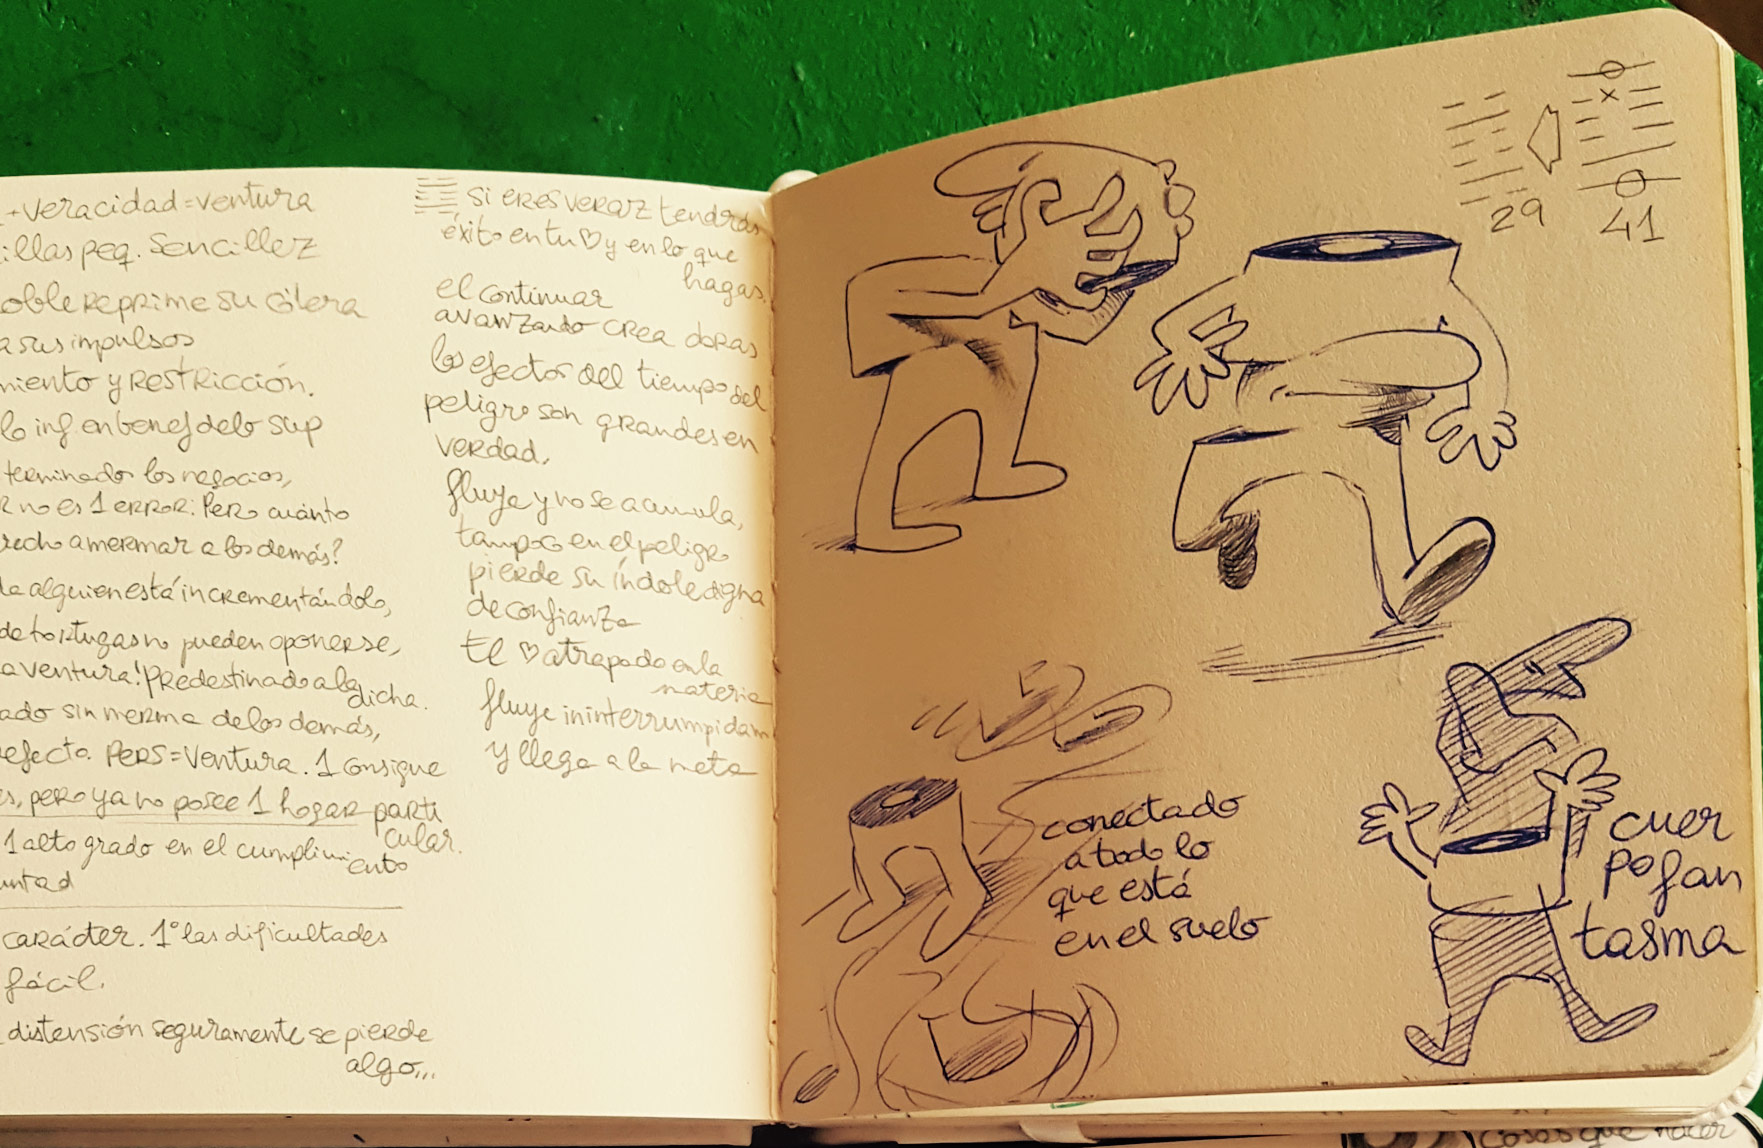 +veracidad=ventura
illas peq. Sencillez
oble reprime su cólera
a sus impulsos
miento y restricción.
lo inf en benef de lo sup
terminado los negocios,
r no es 1 error: Pero cuánto
recho a mermar a los demás?
alguien está incrementándolo,
de tortugas no pueden oponerse,
aventura! Predestinado a la
dicha.
ado sin merma de los demás,
efecto. Pers=Ventura. 1 consigue
s, pero ya no posee 1 hogar parti
cular.
1 alto grado en el cumplimi
ento
untad
carácter. 1º las dificultades
fácil.
distensión seguramente se pierde
algo...
si eres veraz tendrás
éxito en tu ♡ y en lo que
hagas.
el continuar
avanzando crea
los efectos del tiempo del
peligro son grandes en
verdad.
fluye y no se acumula,
tampoco en el peligro
pierde su índole digna
de confianza
El ♡ atrapado en la
materia
fluye ininterrumpidam
y llega a la meta
29 41
conectado
a todo lo
que está
en el suelo
cuer
po fan
tasma
cosas que hacer